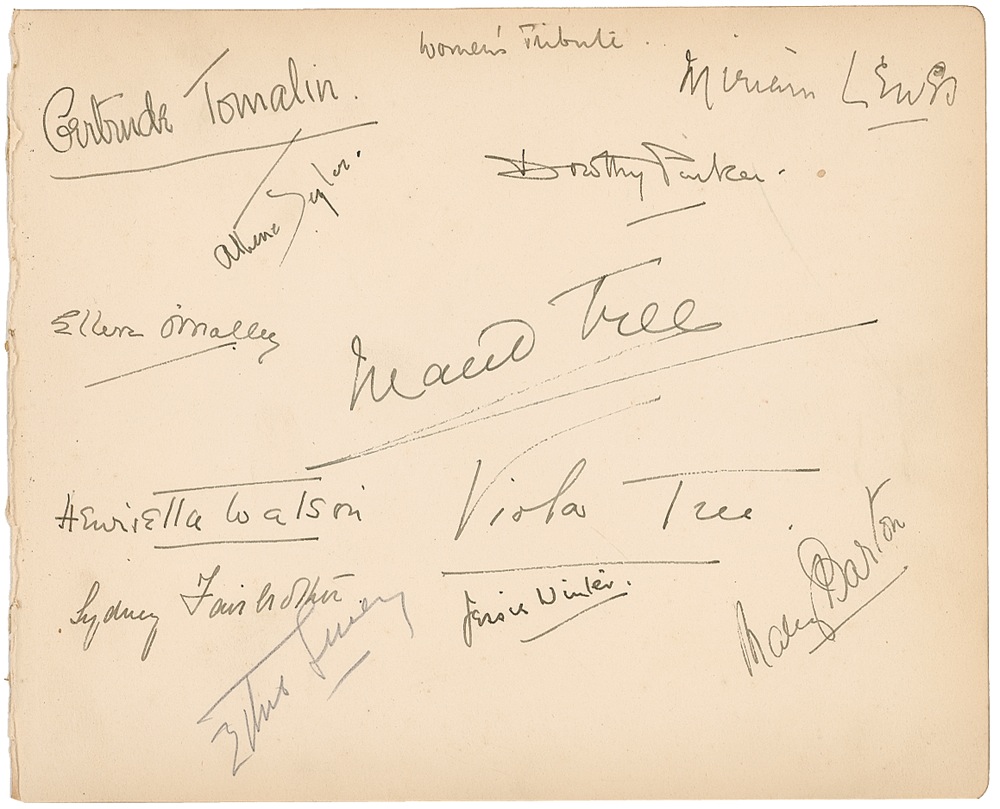 Women's Tribute
Gertrude Tomalin.
Miriam Lewes
Athene Seyler.
Dorothy Parker.
Ellen O'Malley
Maud Tree
Henrietta Watson
Viola Tree.
Sydney Fairbrother.
Jessie Winter.
Mary Barton